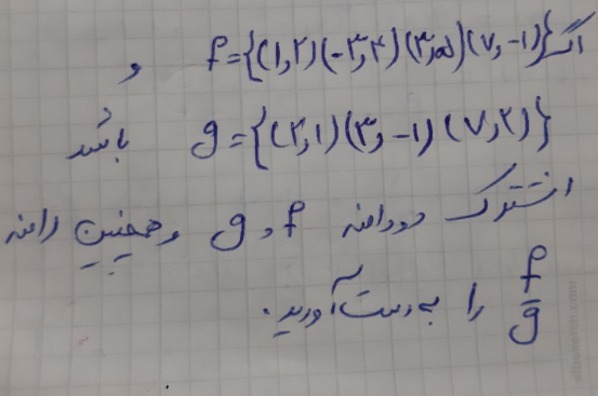 اگر f={(۱,۲)(-۳,۴)(۳,۵)(۷,-۱)} و
g={(۲,۱)(۳,-۱)(۷,۲)} باشد
اشتراک دو دامنه f و g و همچنین دامنه
f/g را به دست آورید.